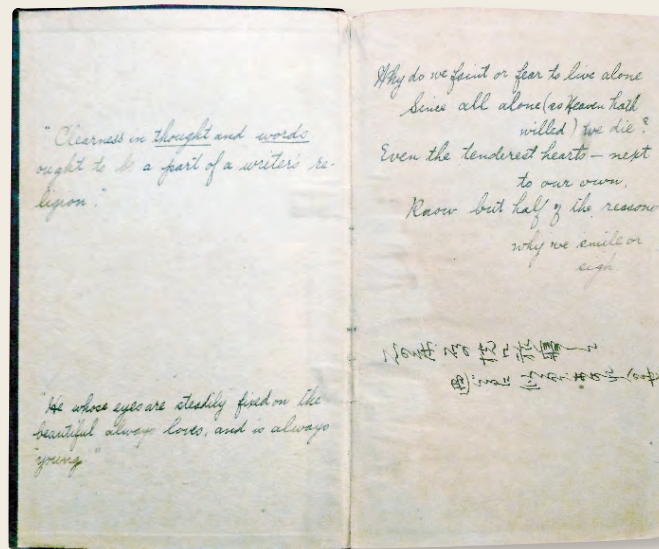 "Clearness in thought and words
ought to be a part of a writer's re-
ligion."
"He whose eyes are steadily fixed on the
beautiful always loves, and is always
young"
Why do we faint or fear to live alone
Since all alone (as Heaven hath
willed) we die?
Even the tenderest hearts — next
to our own,
Know but half of the reasons
why we smile or
sigh